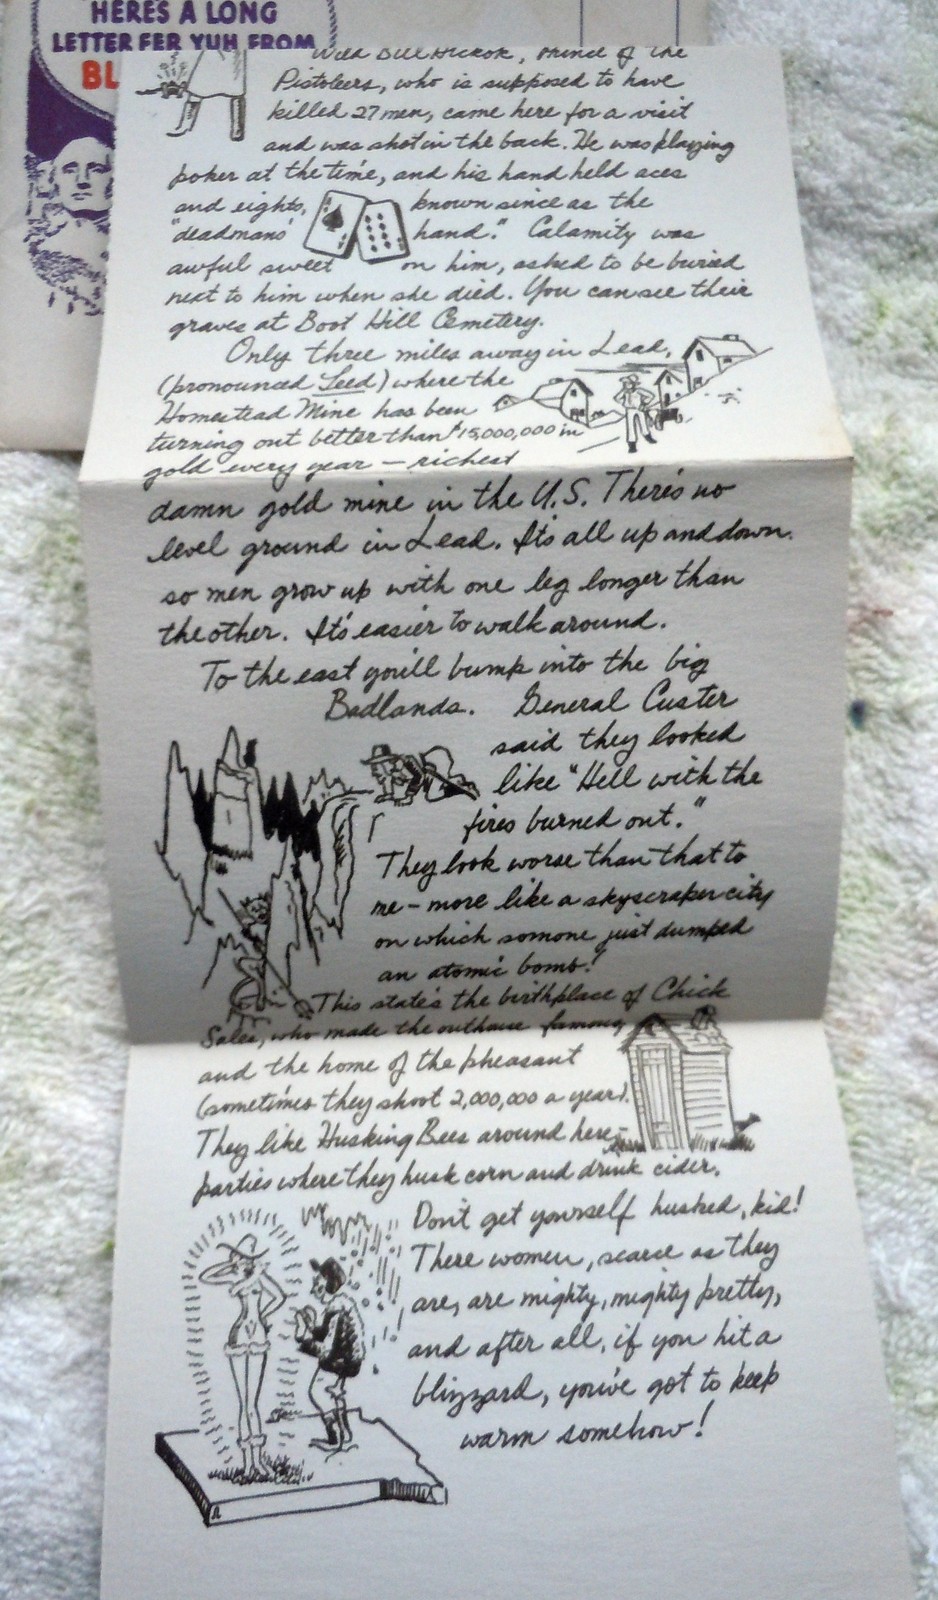 HERE'S A LONG
LETTER FER YUH FROM
BL
Wild Bill Hickok, Prince of the
Pistoleers, who is supposed to have
killed 27 men, came here for a visit
and was shot in the back. He was playing
poker at the time, and his hand held aces
and eights, known since as the
"deadmans' hand." Calamity was
awful sweet on him, asked to be buried
next to him when she died. You can see their
graves at Boot Hill Cemetery.
Only three miles away in Lead,
(pronounced Leed) where the
Homestead Mine has been
turning out better than $15,000,000 in
gold every year — richest
damn gold mine in the U.S. There's no
level ground in Lead. It's all up and down.
so men grow up with one leg longer than
the other. It's easier to walk around.
To the east you'll bump into the big
Badlands. General Custer
said they looked
like "Hell with the
fires burned out."
They look worse than that to
me — more like a skyscraper city
on which somone just dumped
an atomic bomb!
This state's the birthplace of Chick
Sales, who made the outhouse famous,
and the home of the pheasant
(sometimes they shoot 2,000,000 a year).
They like Husking Bees around here —
parties where they husk corn and drink cider.
Don't get yourself husked, kid!
There women, scarce as they
are, are mighty, mighty pretty,
and after all, if you hit a
blizzard, you've got to keep
warm somehow!